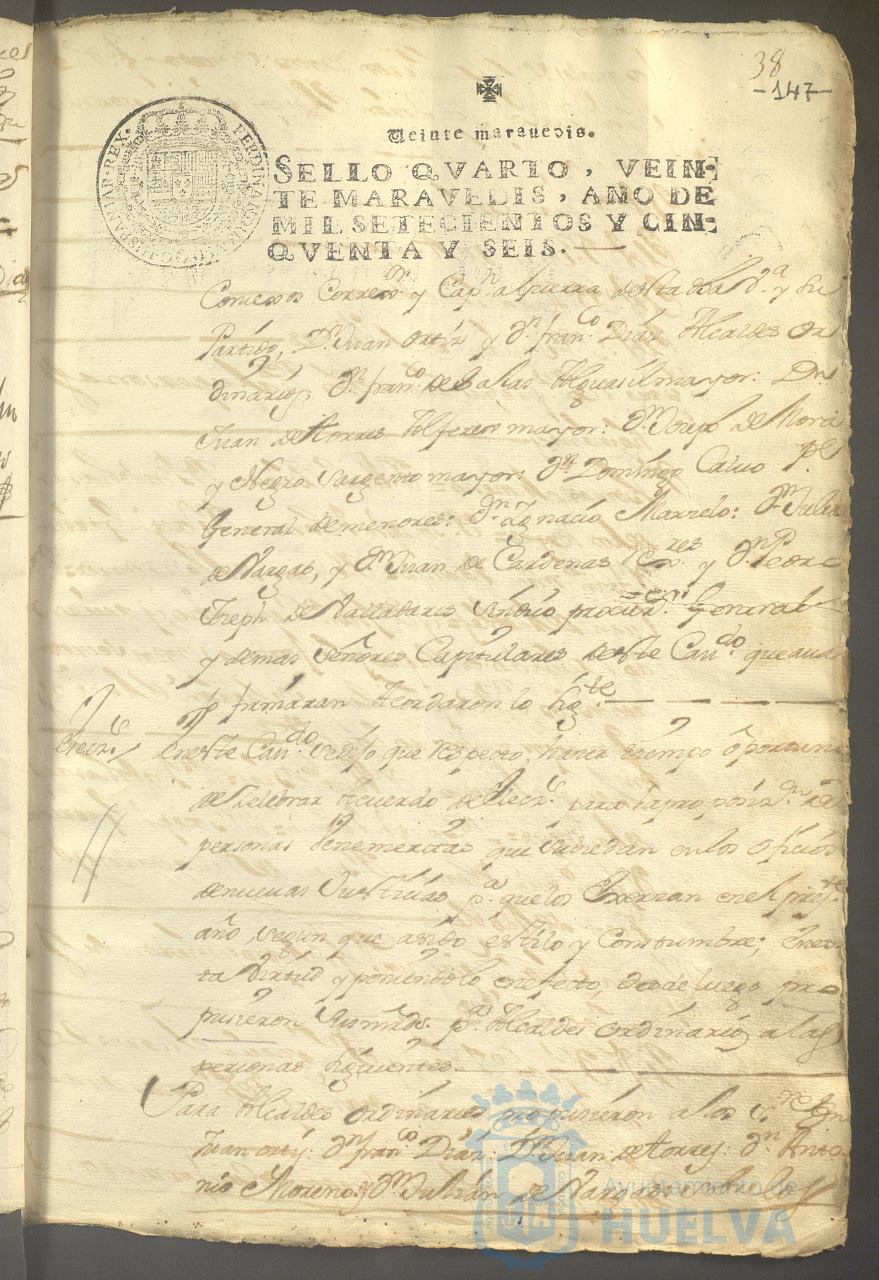 38
-147-
Veinte maravedis.
SELLO QVARTO, VEIN-
TE MARAVEDIS, AÑO DE
MIL SETECIENTOS Y CIN-
QVENTA Y SEIS.
FERDINANDUS HISPANIAR. REX.
Correxor y Capn. a Guerra desta dha Va. y su
Partido, Dn. Juan Ortiz y Dn. franco. Diaz Alcaldes or
dinarios, Dn. franco. de Salas Alguasil mayor: Dn.
Juan de Torres Alferez mayor: Dn. Joseph de Mora
y Negro Sargento mayor: Dn. Domingo Calvo Pe.
General de menores: Dn. Ygnacio Marzelo: Dn. Julian
de Vargas, y Dn. Juan de Cardenas Rexres. y Dn. Pedro
Joseph de Valladares Sindico procur. General
y demas Señores Capitulares deste Cavdo. que ava
jo firmaran Acordaron lo sigte.
Elecn. En este Cavdo. se dijo que respecto, hacer tiempo oportuno
de selebrar Acuerdo de Elecn. para la proposizn. de
personas Venemeritas que subsedan en los oficios
de nuevas Justicias pa. que los Exersan en el preste.
año, segun que a sido estilo y Constumbre; En es
ta Virtud y poniendolo en efecto, desde luego pro
pusieron sus mrds. pa. Alcaldes ordinarios a las
personas siguientes.
Para Alcaldes ordinarios propusieron a los Sres. Dn.
Juan ortiz: Dn. franco. Diaz: Dn. Juan de Torres: Dn. Anto
nio Moreno, y Dn. Julian de Vargas
Ayuntamiento de
HUELVA